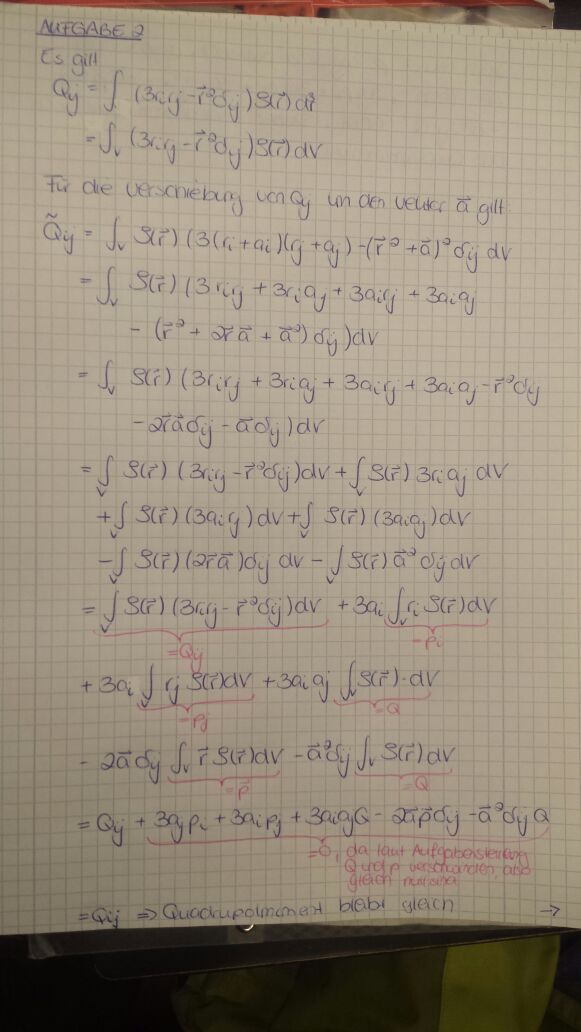 AUFGABE 2
Es gilt
Qij = ∫ (3rirj - r⃗²δij) ρ(r⃗) dr⃗
= ∫v (3rirj - r⃗²δij) ρ(r⃗) dV
Für die Verschiebung von Qij um den Vektor a⃗ gilt:
Q̃ij = ∫v ρ(r⃗) (3(ri + ai)(rj + aj) - (r⃗² + a⃗)² δij dV
= ∫v ρ(r⃗) (3rirj + 3riaj + 3airj + 3aiaj
- (r⃗² + 2r⃗a⃗ + a⃗²) δij) dV
= ∫v ρ(r⃗) (3rirj + 3riaj + 3airj + 3aiaj - r⃗²δij
- 2r⃗a⃗δij - a⃗δij) dV
= ∫v ρ(r⃗) (3rirj - r⃗²δij) dV + ∫v ρ(r⃗) 3riaj dV
+ ∫v ρ(r⃗) (3airj) dV + ∫v ρ(r⃗) (3aiaj) dV
- ∫v ρ(r⃗) (2r⃗a⃗) δij dV - ∫v ρ(r⃗) a⃗² δij dV
= ∫v ρ(r⃗) (3rirj - r⃗²δij) dV + 3ai ∫v ri ρ(r⃗) dV
=Qij =pi
+ 3ai ∫v rj ρ(r⃗) dV + 3aiaj ∫v ρ(r⃗) · dV
=pj =Q
- 2a⃗δij ∫v r⃗ ρ(r⃗) dV - a⃗²δij ∫v ρ(r⃗) dV
=p⃗ =Q
= Qij + 3ajpi + 3aipj + 3aiajQ - 2a⃗p⃗δij - a⃗²δijQ
=0, da laut Aufgabenstellung
Q und p verschwinden, also
gleich null sind
= Qij ⇒ Quadrupolmoment bleibt gleich →